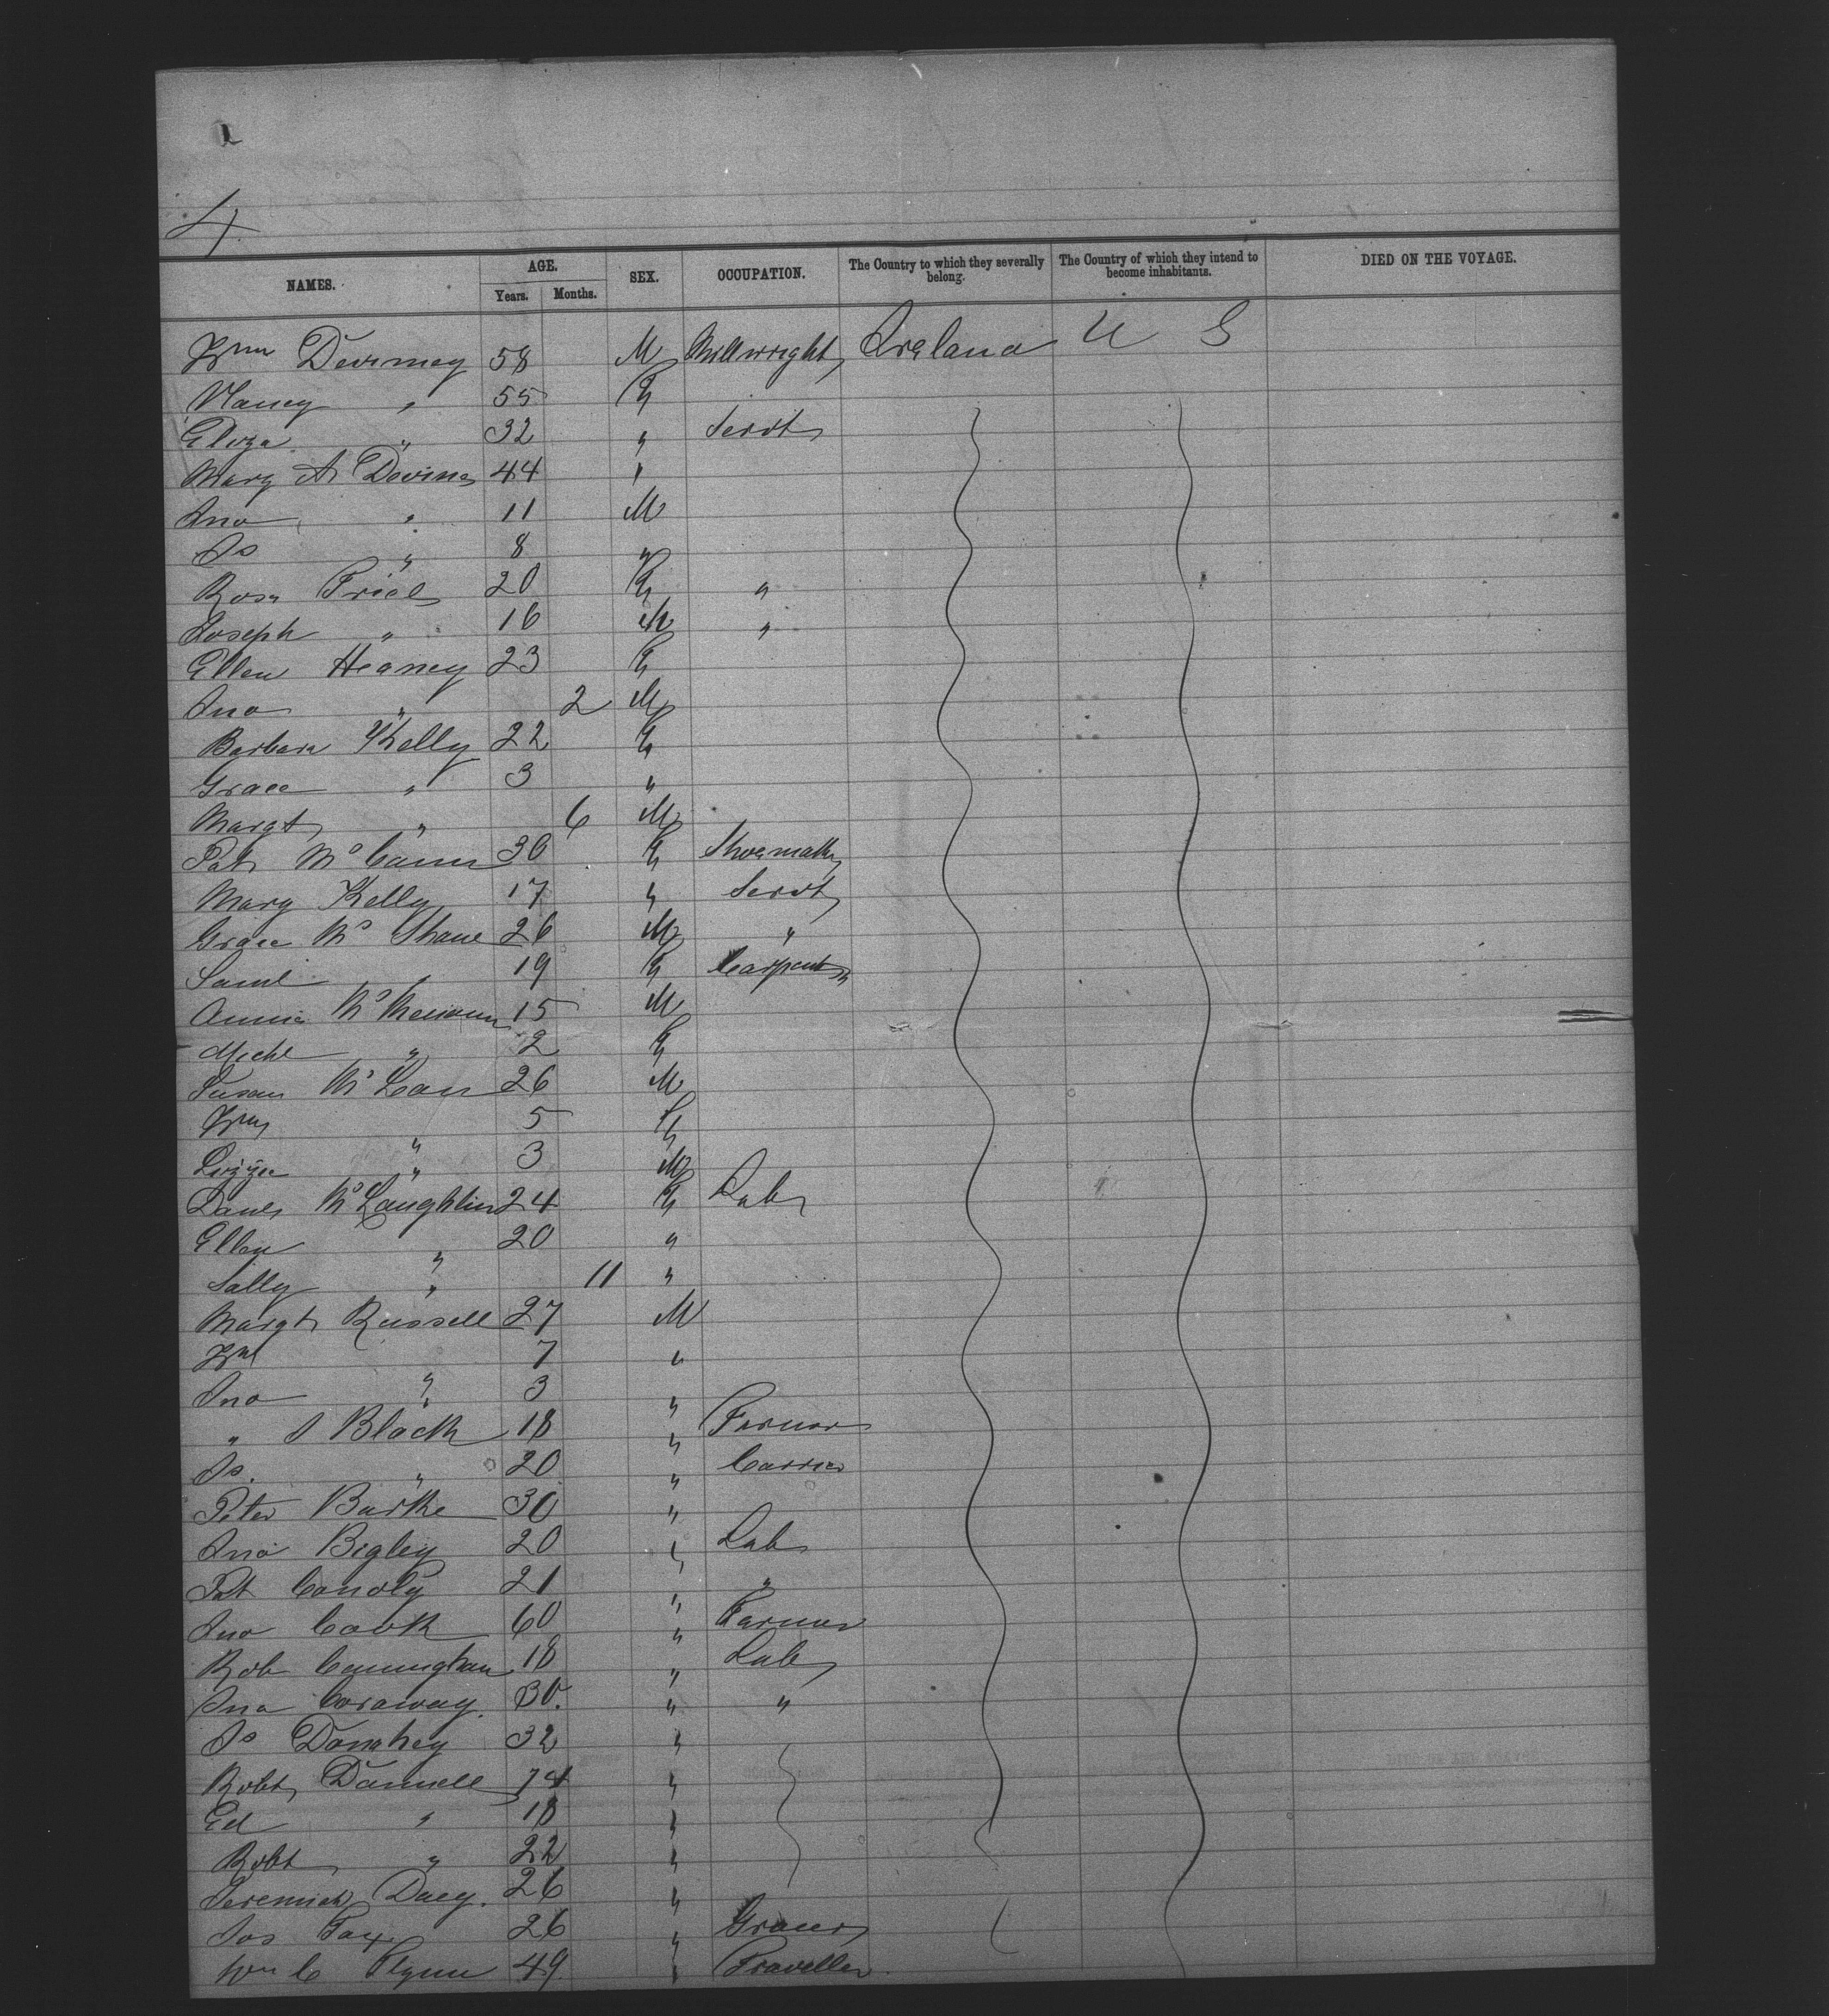 4
NAMES. AGE. SEX. OCCUPATION. The Country to which they severally belong. The Country of which they intend to become inhabitants. DIED ON THE VOYAGE.
Years. Months.
Wm 58 M Millwright Ireland U S
Nancy " 55 F
Eliza " 32 " Servt
Mary A Devine 44 "
Jno " 11 M
Js " 8 "
Rosa Friel 20 F "
Joseph " 16 M "
Ellen Heaney 23 F
Jno " 2 M
Barbara Kelly 22 F
Grace " 3 "
Margt " 6 M
Pat Mc Cann 30 F Shoemaker
Mary Kelly 17 " Servt
Grace Mc Shane 26 M "
Saml " 19 F Carpenter
Annie 15 M
Michl " 2 F
Susan Mc Lean 26 M
Wm " 5 F
Lizzie " 3 M
Danl Mc Laughlin 24 F Lab
Ellen " 20 "
Sally " 11 "
Margt Russell 27 M
Wm " 7 "
Jno " 3 "
" J Black 18 " Farmer
Js. " 20 " Carrier
Peter Burke 30 "
Jno Begley 20 " Lab
Pat 21 " "
Jno Cook 60 " Farmer
Rob Cunningham 18 " Lab
Jno Caraway. 30. " "
Js Donahey 32 "
Robt 74 "
Ed " 18 "
Robt " 22 "
Jeremiah 26 "
Jos Fox 26 " Grocer
Wm C Flynn 49 " Traveller